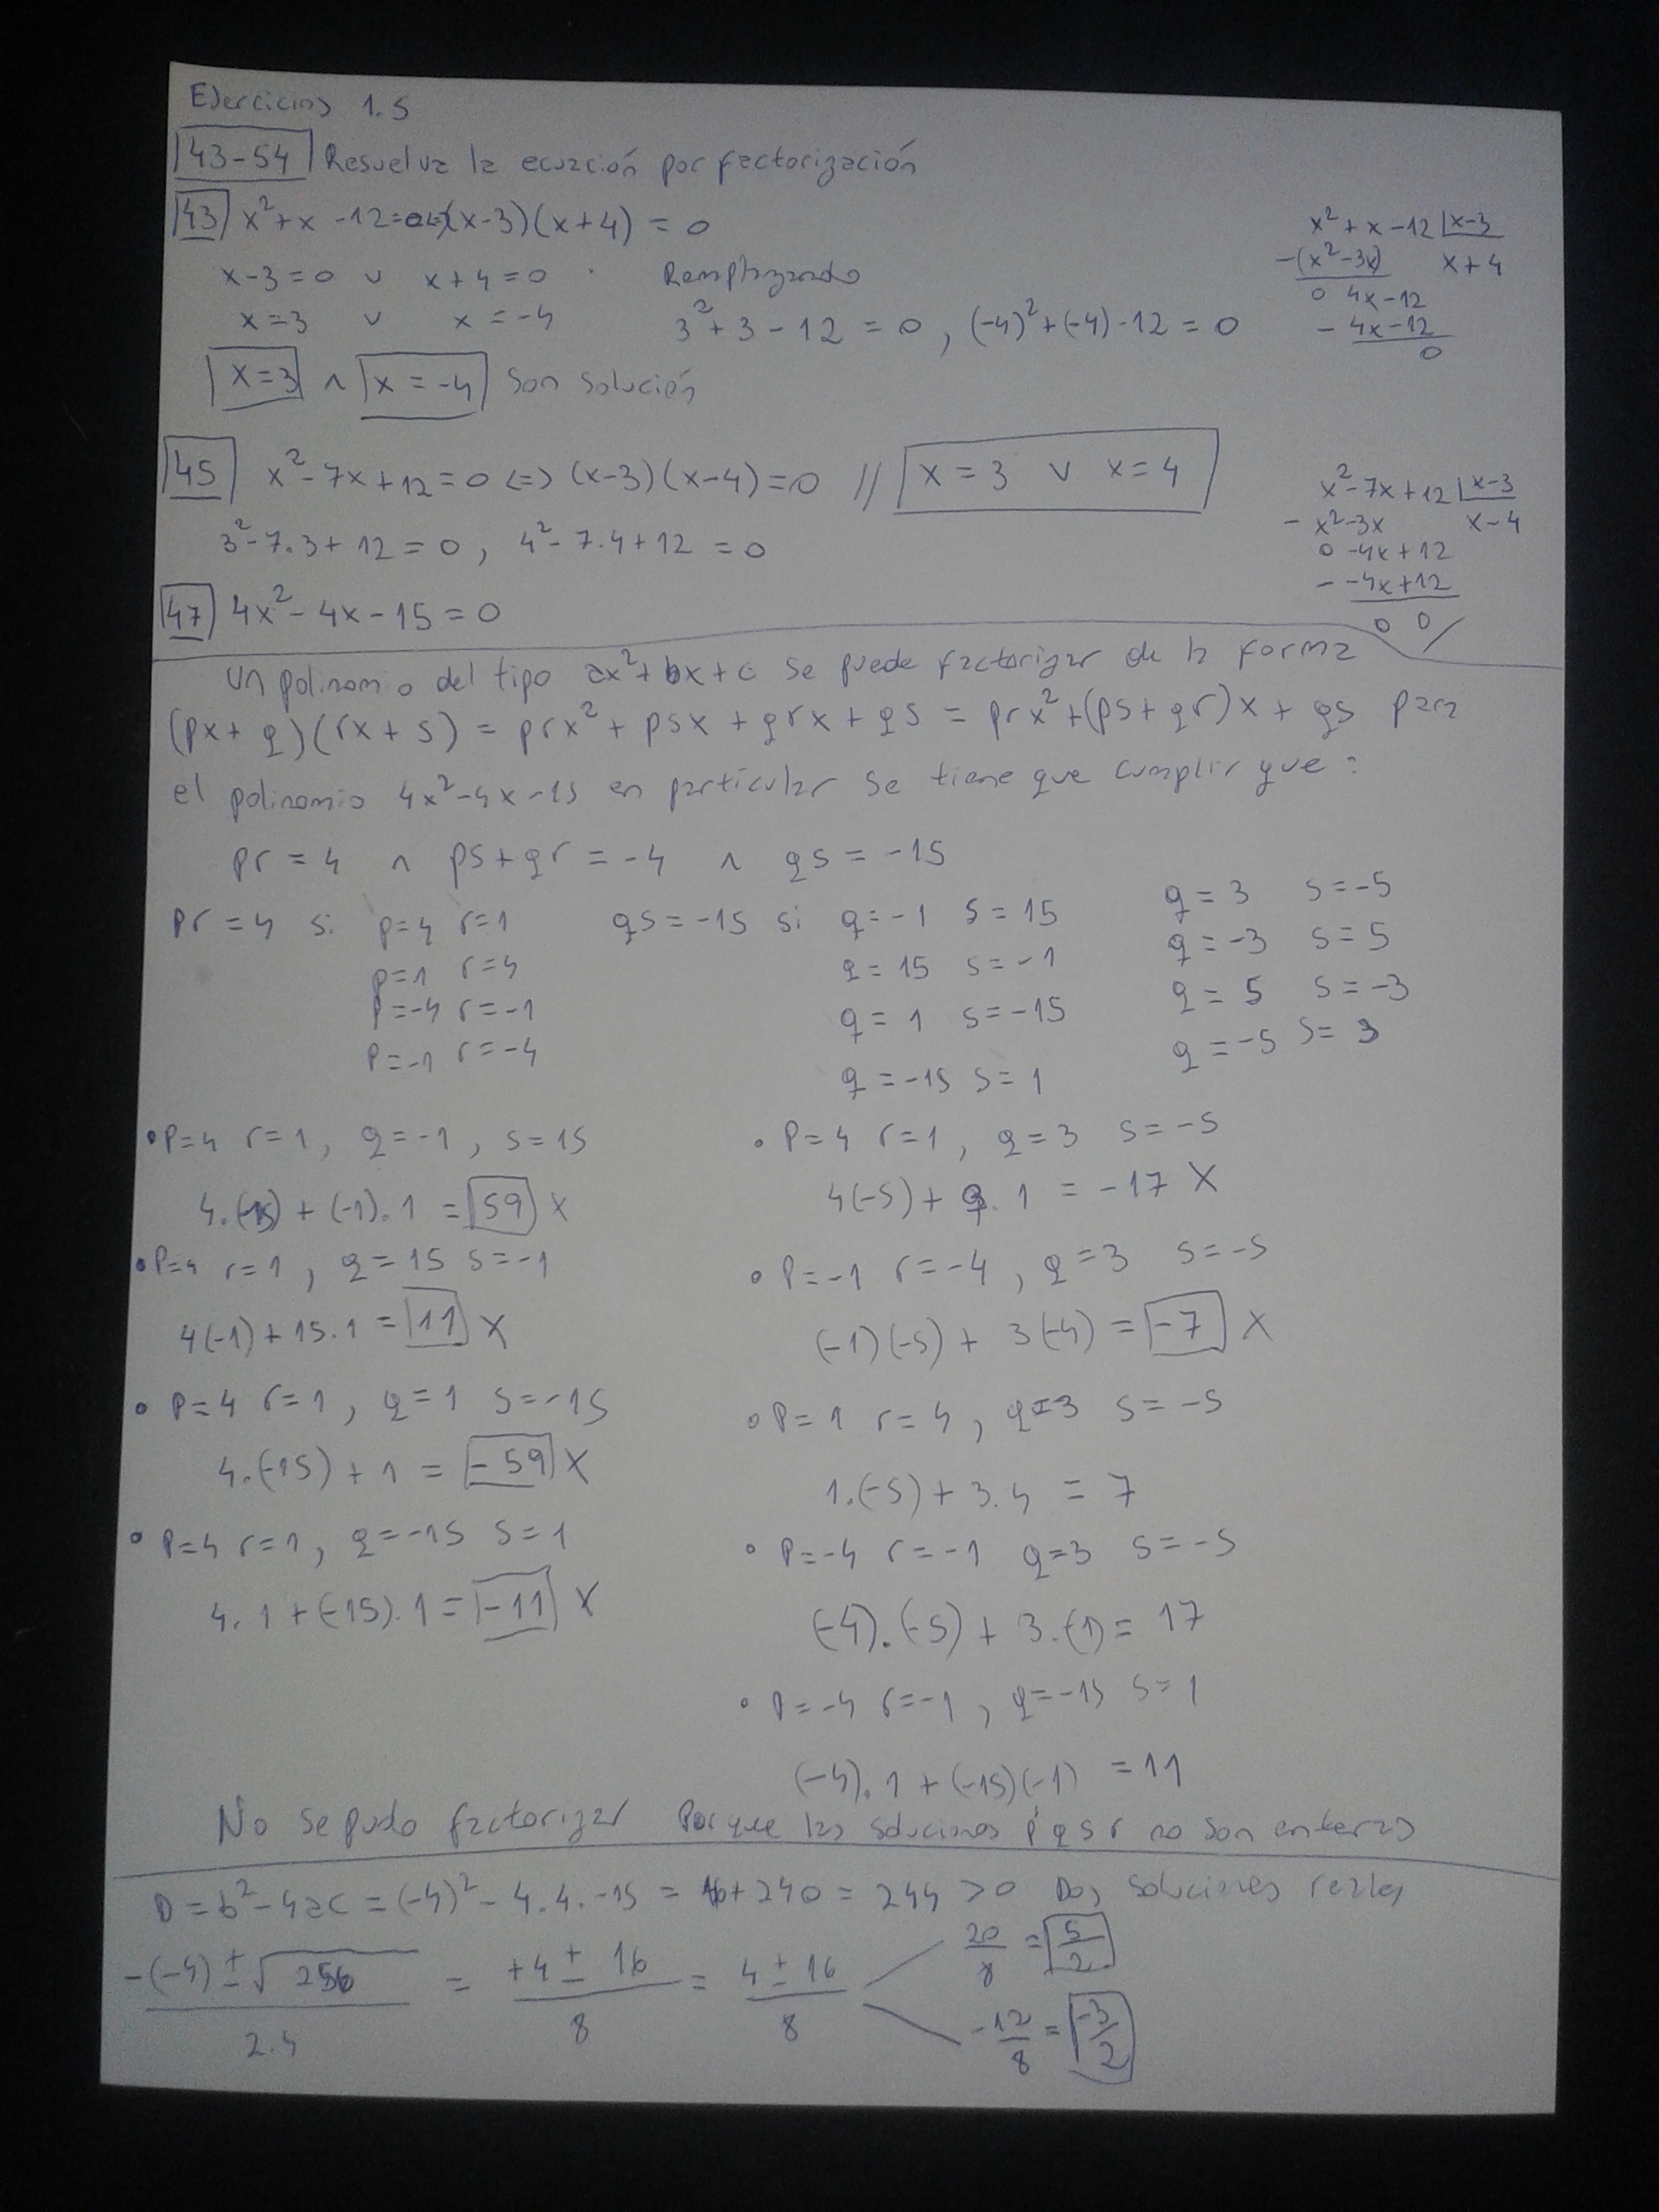 Ejercicios 1.5
43-54 Resuelva la ecuación por factorización
43 x²+x-12=0⇔(x-3)(x+4)=0
x-3=0 ∨ x+4=0 · Remplazando
x=3 ∨ x=-4 3²+3-12=0, (-4)²+(-4)-12=0
x=3 ∧ x=-4 son solución
x²+x-12 | x-3
-(x²-3x) x+4
0 4x-12
- 4x-12
0
45 x²-7x+12=0 ⇔ (x-3)(x-4)=0 // x=3 ∨ x=4
3²-7.3+12=0, 4²-7.4+12=0
x²-7x+12 | x-3
- x²-3x x-4
0 -4x+12
- -4x+12
0 0 /
47 4x²-4x-15=0
Un polinomio del tipo ax²+bx+c se puede factorizar de la forma
(px+q)(rx+s) = prx²+psx+qrx+qs = prx²+(ps+qr)x+qs para
el polinomio 4x²-4x-15 en particular se tiene que cumplir que:
pr=4 ∧ ps+qr=-4 ∧ qs=-15
pr=4 si p=4 r=1 qs=-15 si q=-1 s=15 q=3 s=-5
p=1 r=4 q=15 s=-1 q=-3 s=5
p=-4 r=-1 q=1 s=-15 q=5 s=-3
p=-1 r=-4 q=-15 s=1 q=-5 s=3
• p=4 r=1, q=-1, s=15
4.(15)+(-1).1 = 59 X
• p=4 r=1, q=15 s=-1
4(-1)+15.1 = 11 X
• p=4 r=1, q=1 s=-15
4.(-15)+1 = -59 X
• p=4 r=1, q=-15 s=1
4.1+(-15).1 = -11 X
• p=4 r=1, q=3 s=-5
4(-5)+3.1 = -17 X
• p=-1 r=-4, q=3 s=-5
(-1)(-5)+3(-4) = -7 X
• p=1 r=4, q=3 s=-5
1.(-5)+3.4 = 7
• p=-4 r=-1 q=3 s=-5
(-4).(-5)+3.(-1) = 17
• p=-4 r=-1, q=-15 s=1
(-4).1+(-15)(-1) = 11
No se pudo factorizar Porque las soluciones p q s r no son enteras
D=b²-4ac=(-4)²-4.4.-15=16+240=244>0 Dos soluciones reales
-(-4)±√256 / 2.4 = +4±16 / 8 = 4±16 / 8
20/8 = 5/2
-12/8 = -3/2